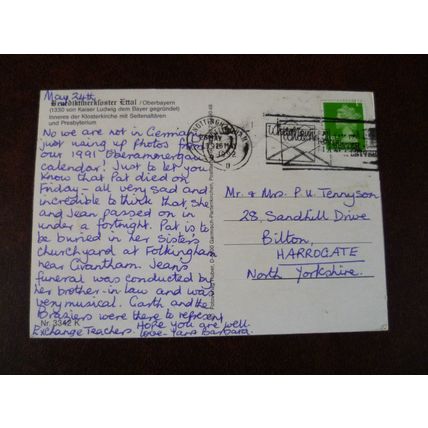 May 24th
Benediktinerkloster Ettal / Oberbayern
(1330 von Kaiser Ludwig dem Bayer gegründet)
Inneres der Klosterkirche mit Seitenaltären
und Presbyterium
No we are not in Germany
just using up photos from
our 1991 Oberammergau
calendar! Just to let you
know that Pat died on
Friday - all very sad and
incredible to think that she
and Jean passed on in
under a fortnight. Pat is to
be buried in her sister's
churchyard at Folkingham
near Grantham. Jean's
funeral was conducted by
her brother-in-law and was
very musical. Garth and the
Braziers were there to represent
Exchange Teachers. Hope you are well.
Love
Barbara.
Nr. 3342 K
NOTTINGHAM
MAY
Mr. & Mrs. P. U. Tennyson
28, Sandhill Drive
Bilton,
HARROGATE
North Yorkshire.